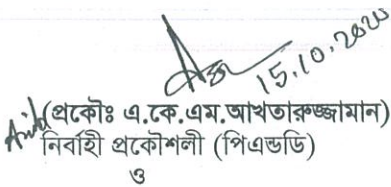 15.10.2020
(প্রকৌঃ এ.কে.এম.আখতারুজ্জামান)
নির্বাহী প্রকৌশলী (পিএন্ডডি)
ও